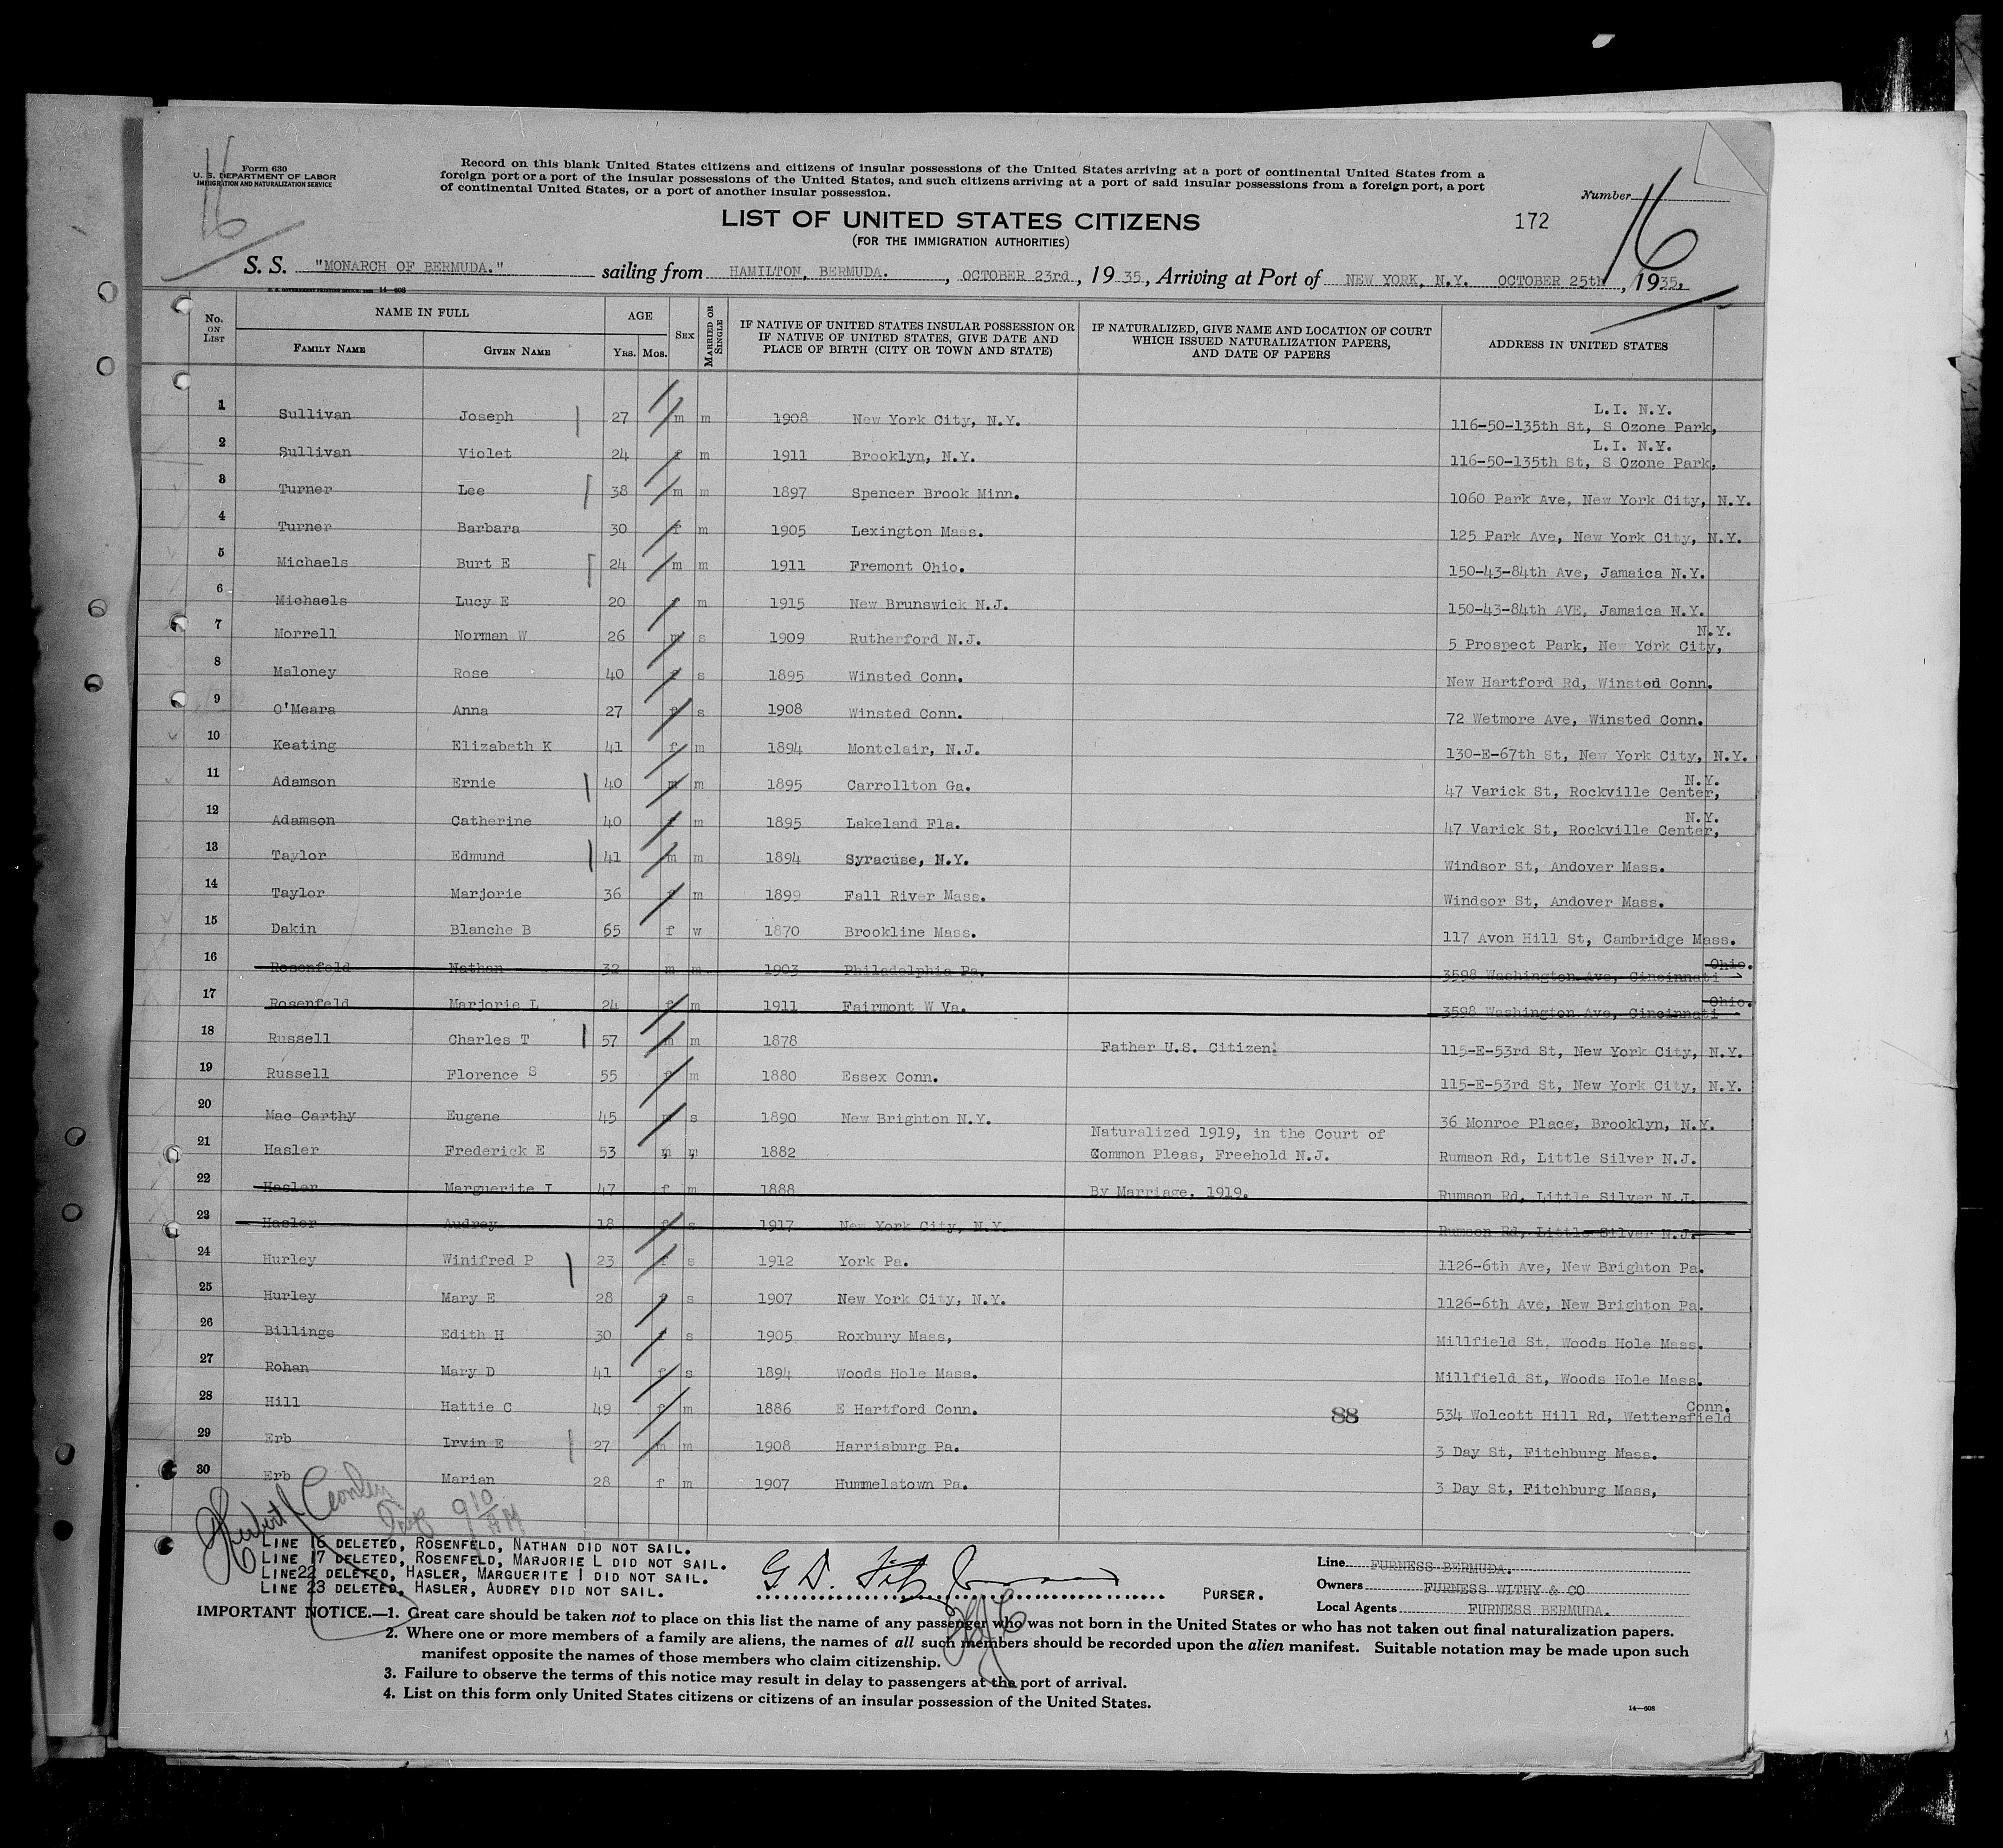 Form 630
U. S. DEPARTMENT OF LABOR
IMMIGRATION AND NATURALIZATION SERVICE
16
Record on this blank United States citizens and citizens of insular possessions of the United States arriving at a port of continental United States from a
foreign port or a port of the insular possessions of the United States, and such citizens arriving at a port of said insular possessions from a foreign port, a port
of continental United States, or a port of another insular possession.
Number 16
LIST OF UNITED STATES CITIZENS
172
(FOR THE IMMIGRATION AUTHORITIES)
S. S. "MONARCH OF BERMUDA." sailing from HAMILTON, BERMUDA. , OCTOBER 23rd , 19 35, Arriving at Port of NEW YORK, N.Y. OCTOBER 25th , 1935.
No. ON LIST
NAME IN FULL
FAMILY NAME
GIVEN NAME
AGE
YRS. MOS.
SEX
MARRIED OR SINGLE
IF NATIVE OF UNITED STATES INSULAR POSSESSION OR
IF NATIVE OF UNITED STATES, GIVE DATE AND
PLACE OF BIRTH (CITY OR TOWN AND STATE)
IF NATURALIZED, GIVE NAME AND LOCATION OF COURT
WHICH ISSUED NATURALIZATION PAPERS,
AND DATE OF PAPERS
ADDRESS IN UNITED STATES
1 Sullivan Joseph 27 m m 1908 New York City, N.Y. 116-50-135th St, S Ozone Park, L.I. N.Y.
2 Sullivan Violet 24 f m 1911 Brooklyn, N.Y. 116-50-135th St, S Ozone Park, L.I. N.Y.
3 Turner Lee 38 m m 1897 Spencer Brook Minn. 1060 Park Ave, New York City, N.Y.
4 Turner Barbara 30 f m 1905 Lexington Mass. 125 Park Ave, New York City, N.Y.
5 Michaels Burt E 24 m m 1911 Fremont Ohio. 150-43-84th Ave, Jamaica N.Y.
6 Michaels Lucy E 20 f m 1915 New Brunswick N.J. 150-43-84th AVE, Jamaica N.Y.
7 Morrell Norman W 26 m s 1909 Rutherford N.J. 5 Prospect Park, New York City, N.Y.
8 Maloney Rose 40 f s 1895 Winsted Conn. New Hartford Rd, Winsted Conn.
9 O'Meara Anna 27 f s 1908 Winsted Conn. 72 Wetmore Ave, Winsted Conn.
10 Keating Elizabeth K 41 f m 1894 Montclair, N.J. 130-E-67th St, New York City, N.Y.
11 Adamson Ernie 40 m m 1895 Carrollton Ga. 47 Varick St, Rockville Center, N.Y.
12 Adamson Catherine 40 f m 1895 Lakeland Fla. 47 Varick St, Rockville Center, N.Y.
13 Taylor Edmund 41 m m 1894 Syracuse, N.Y. Windsor St, Andover Mass.
14 Taylor Marjorie 36 f m 1899 Fall River Mass. Windsor St, Andover Mass.
15 Dakin Blanche B 65 f w 1870 Brookline Mass. 117 Avon Hill St, Cambridge Mass.
16 Rosenfeld Nathan 32 m m 1903 Philadelphia Pa. 3598 Washington Ave, Cincinnati Ohio.
17 Rosenfeld Marjorie L 24 f m 1911 Fairmont W Va. 3598 Washington Ave, Cincinnati Ohio.
18 Russell Charles T 57 m m 1878 Father U.S. Citizen. 115-E-53rd St, New York City, N.Y.
19 Russell Florence S 55 f m 1880 Essex Conn. 115-E-53rd St, New York City, N.Y.
20 Mac Carthy Eugene 45 m s 1890 New Brighton N.Y. 36 Monroe Place, Brooklyn, N.Y.
21 Hasler Frederick E 53 m m 1882 Naturalized 1919, in the Court of Common Pleas, Freehold N.J. Rumson Rd, Little Silver N.J.
22 Hasler Marguerite I 47 f m 1888 By Marriage. 1919. Rumson Rd, Little Silver N.J.
23 Hasler Audrey 18 f s 1917 New York City, N.Y. Rumson Rd, Little Silver N.J.
24 Hurley Winifred P 23 f s 1912 York Pa. 1126-6th Ave, New Brighton Pa.
25 Hurley Mary E 28 f s 1907 New York City, N.Y. 1126-6th Ave, New Brighton Pa.
26 Billings Edith H 30 f s 1905 Roxbury Mass, Millfield St, Woods Hole Mass.
27 Rohan Mary D 41 f s 1894 Woods Hole Mass. Millfield St, Woods Hole Mass.
28 Hill Hattie C 49 f m 1886 E Hartford Conn. 88 534 Wolcott Hill Rd, Wettersfield Conn.
29 Erb Irvin E 27 m m 1908 Harrisburg Pa. 3 Day St, Fitchburg Mass.
30 Erb Marian 28 f m 1907 Hummelstown Pa. 3 Day St, Fitchburg Mass,
LINE 16 DELETED, ROSENFELD, NATHAN DID NOT SAIL.
LINE 17 DELETED, ROSENFELD, MARJORIE L DID NOT SAIL.
LINE22 DELETED, HASLER, MARGUERITE I DID NOT SAIL.
LINE 23 DELETED, HASLER, AUDREY DID NOT SAIL.
G D. PURSER.
Line FURNESS BERMUDA.
Owners FURNESS WITHY & CO
Local Agents FURNESS BERMUDA.
IMPORTANT NOTICE.—1. Great care should be taken not to place on this list the name of any passenger who was not born in the United States or who has not taken out final naturalization papers.
2. Where one or more members of a family are aliens, the names of all such members should be recorded upon the alien manifest. Suitable notation may be made upon such
manifest opposite the names of those members who claim citizenship.
3. Failure to observe the terms of this notice may result in delay to passengers at the port of arrival.
4. List on this form only United States citizens or citizens of an insular possession of the United States.
14—608